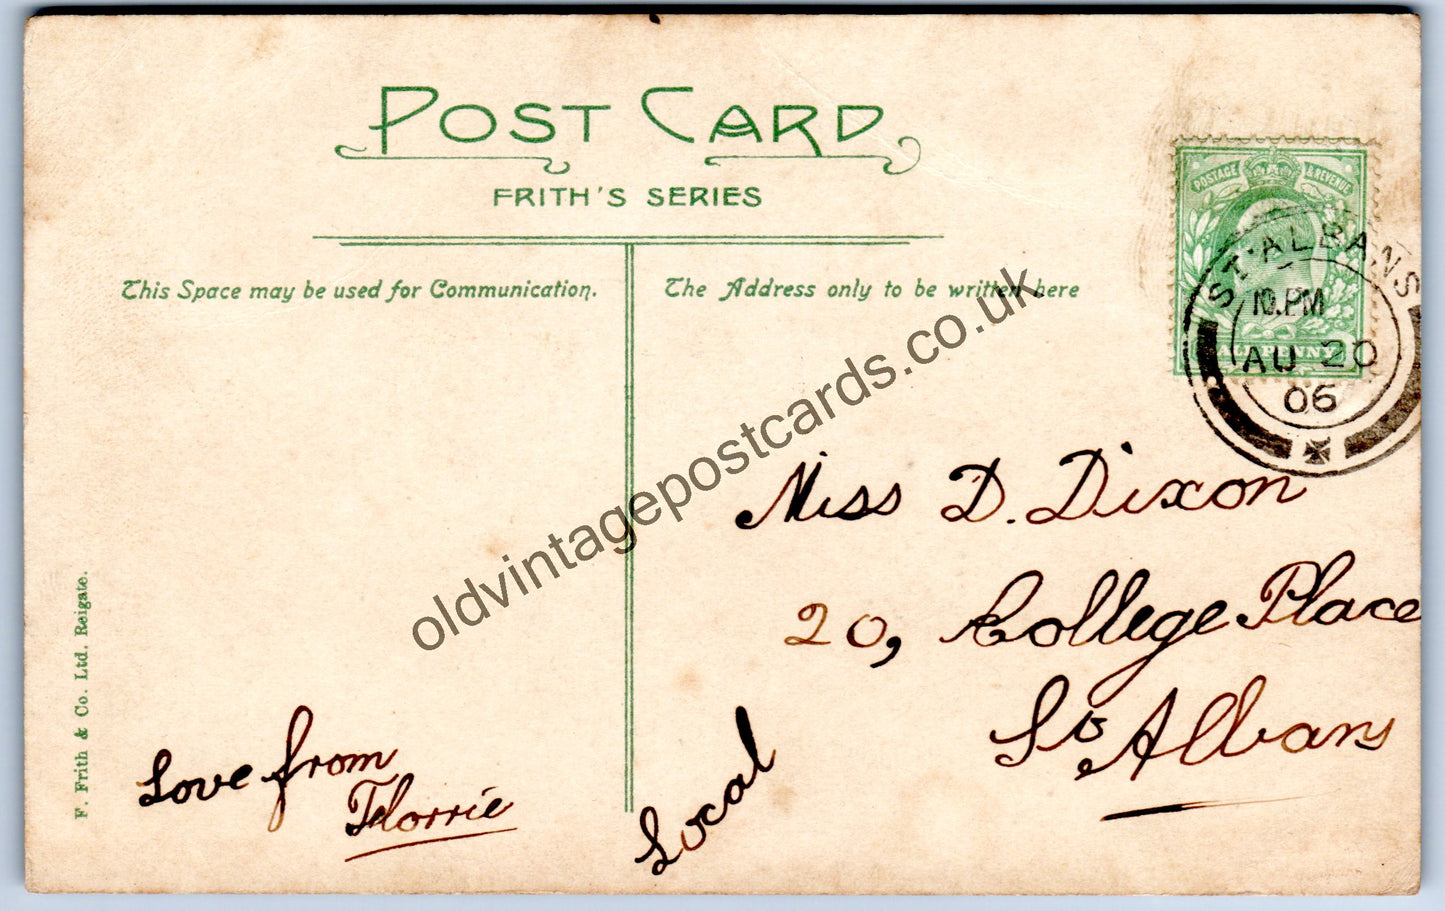 POST CARD
FRITH'S SERIES
This Space may be used for Communication.
The Address only to be written here
POSTAGE & REVENUE
HALFPENNY
ST ALBANS
10. PM
AU 20
06
Miss D. Dixon
20, College Place
St Albans
Local
Love from
Florrie
F. Frith & Co. Ltd. Reigate.
oldvintagepostcards.co.uk